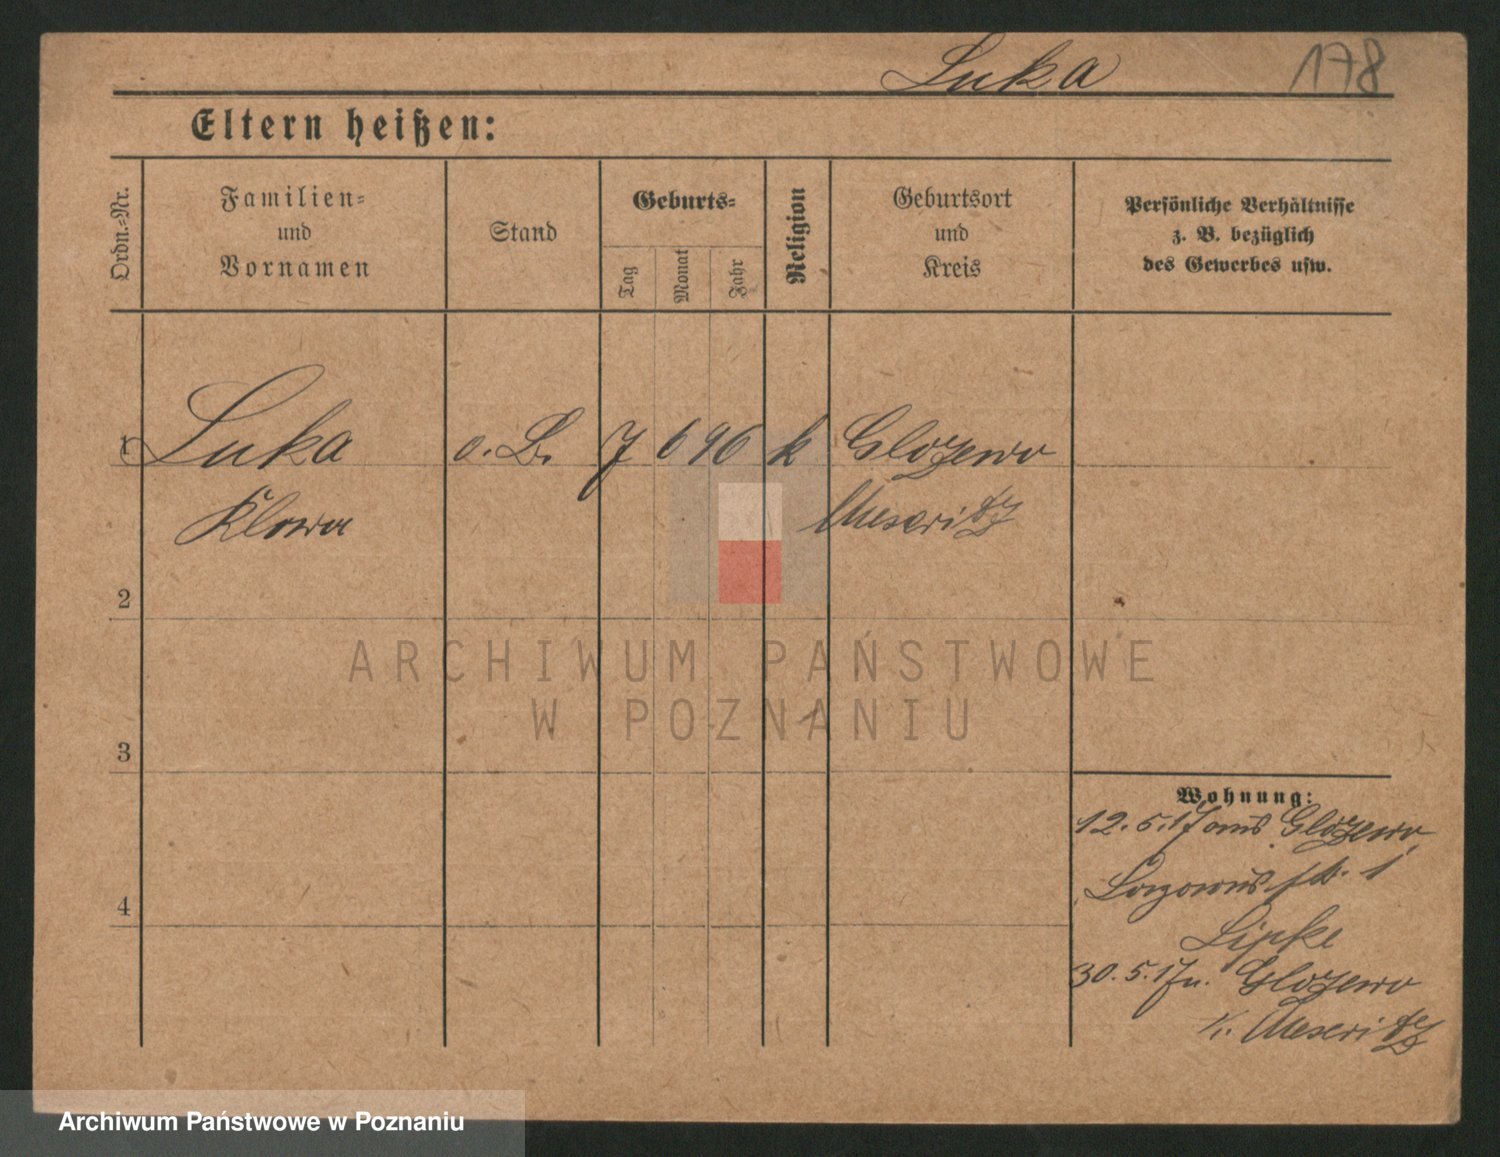 Luka 178
Eltern heißen:
Ordn.-Nr.
Familien-
und
Vornamen
Stand
Geburts-
Tag
Monat
Jahr
Religion
Geburtsort
und
Kreis
Persönliche Verhältnisse
z. B. bezüglich
des Gewerbes usw.
1 Luka o. B. 7 6 96 k Glozewo
Klara Meseritz
2
3
4
Wohnung:
12. 5. 17 aus Glozewo
1
Lipke
30. 5. 17 n. Glozewo
K. Meseritz
ARCHIWUM PAŃSTWOWE
W POZNANIU
Archiwum Państwowe w Poznaniu